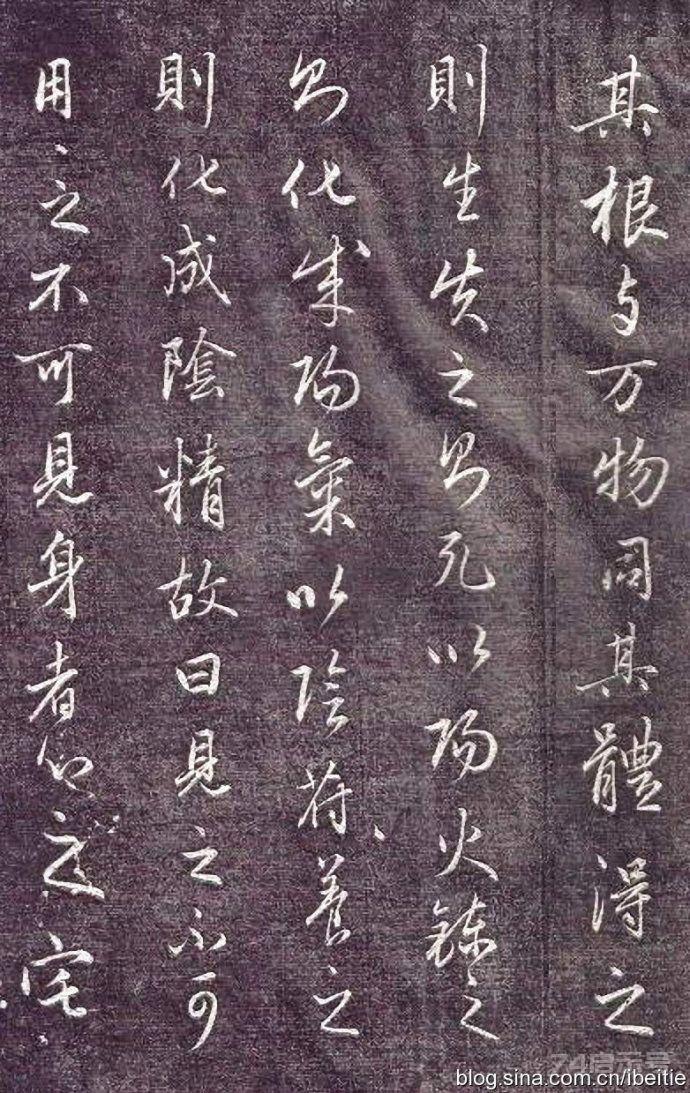 其根与万物同其體得之
則生失之則死以陽火鍊之
則化成陽氣以陰符養之
則化成陰精故曰見之不可
用、之不可見身者心之宅
blog.sina.com.cn/ibeitie